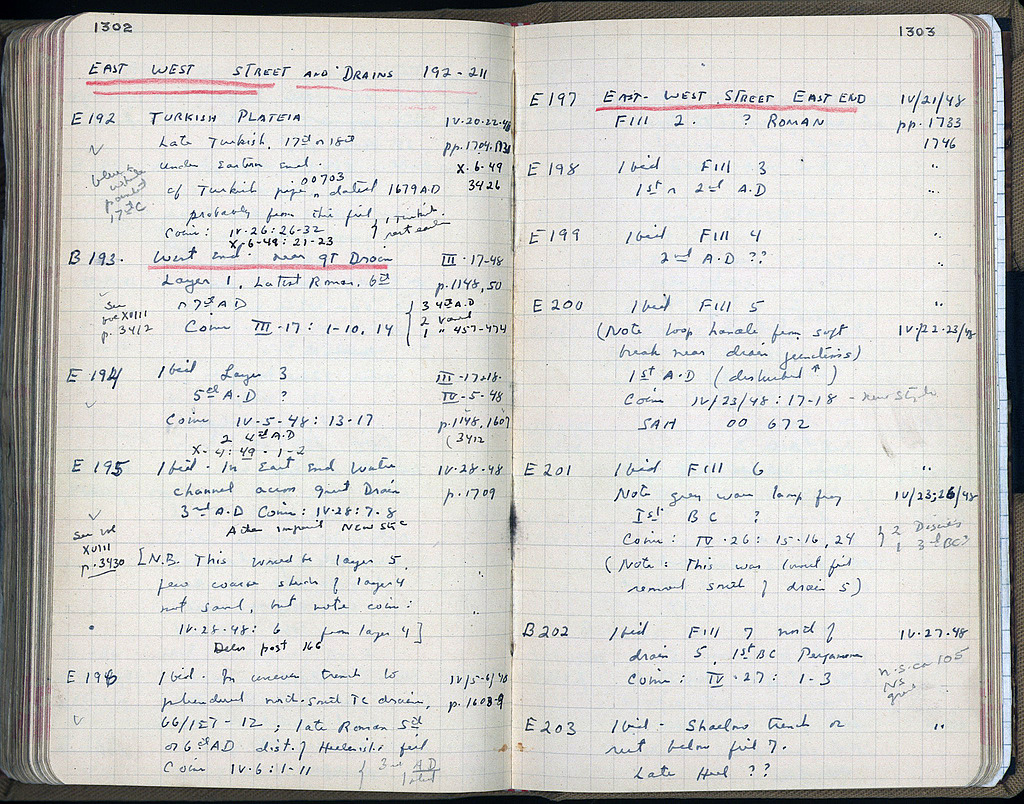 1302
EAST WEST STREET AND DRAINS 192-211
E 192 TURKISH PLATEIA IV-20-22-48
Late Turkish, 17th or 18th pp. 1704, 1731
under Eastern end. X-6-49
cf Turkish pipe 00703 dated 1679 A.D 3426
blue & white painted 17th C
probably from this fill
Coins: IV-26:26-32 { 1 Turkish rest earlier
X-6-49: 21-23
B 193. West End near gt Drain III-17-48
Layer 1, Latest Roman, 6th p.1148, 50
or 7th A D
See vol XVIII p. 3412
Coins III-17: 1-10, 14 { 3 4th A.D
2 Vand
1 " 457-474
E 194 Ibid Layer 3 III-17-18-
5th A.D ? IV-5-48
Coins IV-5-48: 13-17 p.1148, 1607
2 4th A.D (3412
X-4:49-1-2
E 195 Ibid. In East End Water IV-28-48
channel across great Drain p.1709
3rd A.D Coins: IV-28:7-8
Athen imperial New Style
See vol XVIII p.3430
[N.B. This would be layer 5,
few coarse sherds of layer 4
not saved, but note coin:
IV-28-48: 6 from layer 4]
Delos post 166
E 196 Ibid. In trench to IV/5-6/48
north-south TC drain, p. 1608-9
66/1ΣT-12; late Roman 5th
or 6th AD dist. of Hellenistic fill
Coins IV-6:1-11 { 3rd AD latest
1303
E 197 EAST-WEST STREET EAST END IV/21/48
FILL 2. ? ROMAN pp. 1733
1746
E 198 Ibid Fill 3 "
1st or 2nd A.D "
E 199 Ibid Fill 4 "
2nd A.D ?? "
E 200 Ibid Fill 5 "
(Note loop handle from soft IV/22-23/48
break near drain junctions)
1st A.D (disturbed ↑)
Coins IV/23/48: 17-18 - New Style
SAH 00 672
E 201 Ibid Fill 6 "
Note grey ware lamp frag IV/23;26/48
Ist BC ?
Coins: IV-26: 15-16, 24 } 2
1 3rd BC?
(Note: This was fill
removed south of drain 5)
B 202 Ibid Fill 7 north of IV-27-48
drain 5, 1st BC Pergamene
Coins: IV-27: 1-3
N.S. ca 105
NS
E 203 Ibid - Shallow trench or "
rut below fill 7.
Late Hel ??